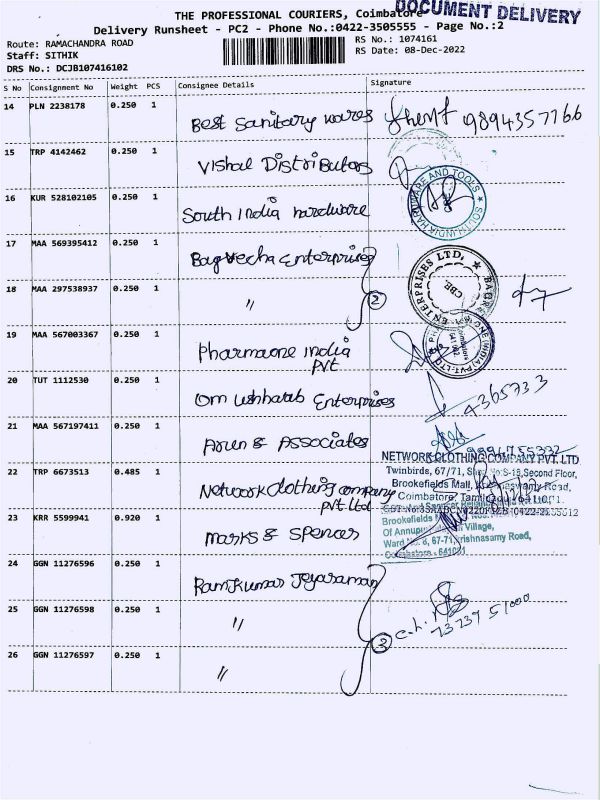 THE PROFESSIONAL COURIERS, Coimbatore
DOCUMENT DELIVERY
Delivery Runsheet - PC2 - Phone No.:0422-3505555 - Page No.:2
Route: RAMACHANDRA ROAD
RS No.: 1074161
Staff: SITHIK
RS Date: 08-Dec-2022
DRS No.: DCJB107416102
S No Consignment No Weight PCS Consignee Details Signature
14 PLN 2238178 0.250 1 Best Sanitary wares 9894357766
15 TRP 4142462 0.250 1 Vishal Distributors
16 KUR 528102105 0.250 1 South India hardware
SOUTH INDIA HARDWARE AND TOOLS
17 MAA 569395412 0.250 1 Bagvecha Enterprises
ENTERPRISES LTD.
CBE
18 MAA 297538937 0.250 1 " 2
19 MAA 567003367 0.250 1 Pharmaone India
Pvt
20 TUT 1112530 0.250 1 Om Enterprises 4365733
21 MAA 567197411 0.250 1 Arun & Associates
9994755332
NETWORK CLOTHING COMPANY PVT. LTD
Twinbirds, 67/71, No:S-18,Second Floor,
22 TRP 6673513 0.485 1 Network clothing company
Pvt Ltd
Brookefields Mall, Krishnaswamy Road,
Coimbatore, Tamilnadu
23 KRR 5599941 0.920 1 Marks & Spencer
Brookefields
Of Annupur Village,
Ward No. 8, 67-71, Krishnasamy Road,
Coimbatore - 641001
24 GGN 11276596 0.250 1 Ramkumar Jeyaraman
25 GGN 11276598 0.250 1 "
3 7373951000
26 GGN 11276597 0.250 1 "